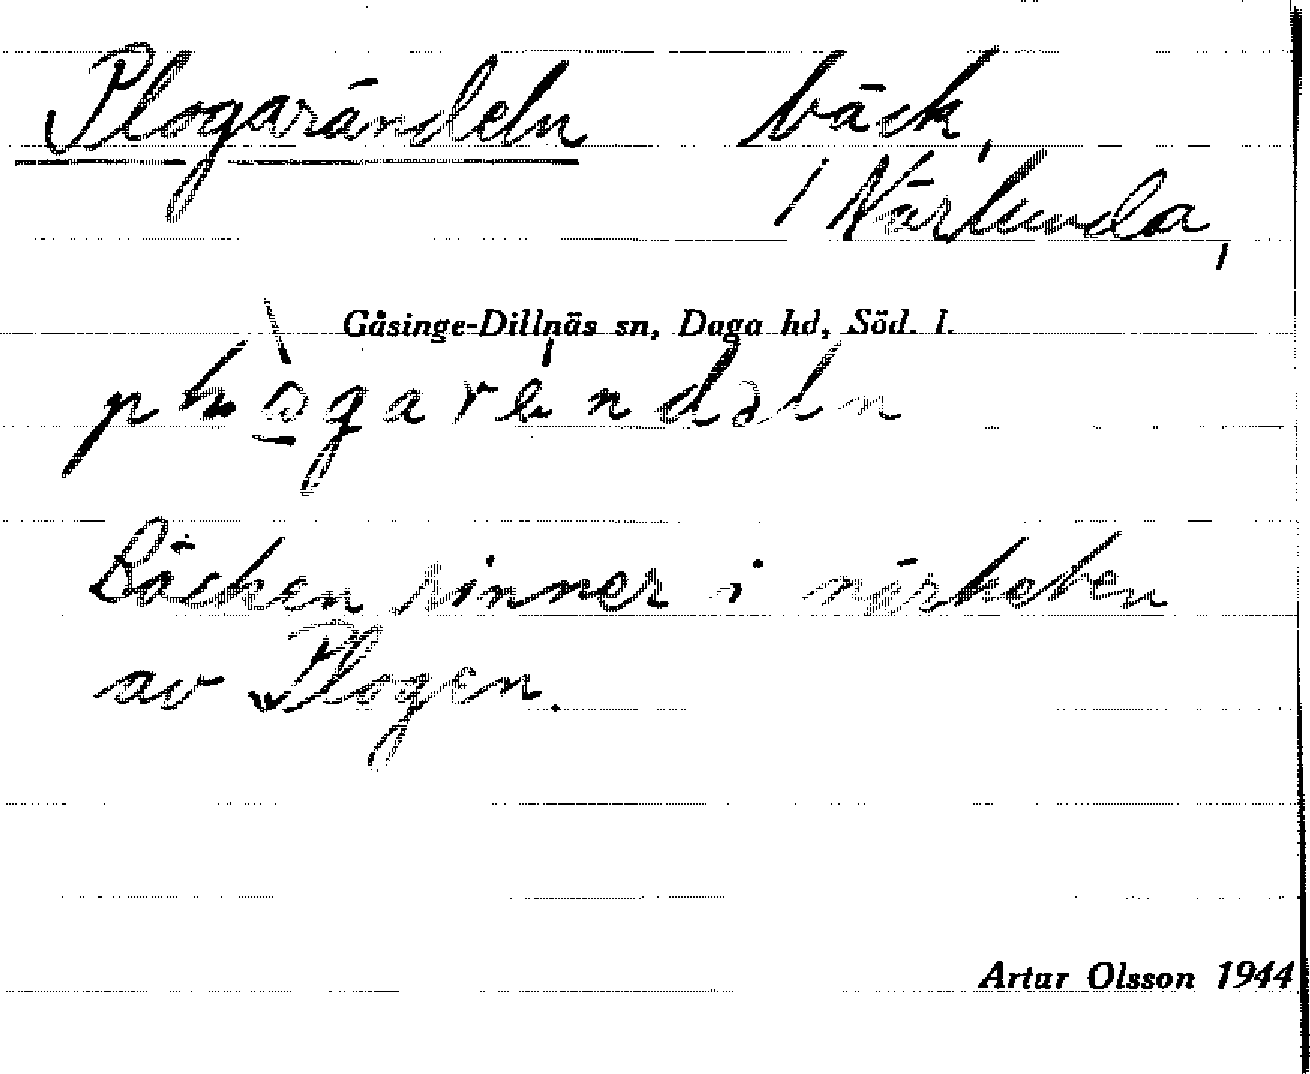 Plogarändeln bäck,
i Närlunda,
Gåsinge-Dillnäs sn, Daga hd, Söd. l.
Bäcken rinner i närheten
av Plogen.
Artur Olsson 1944